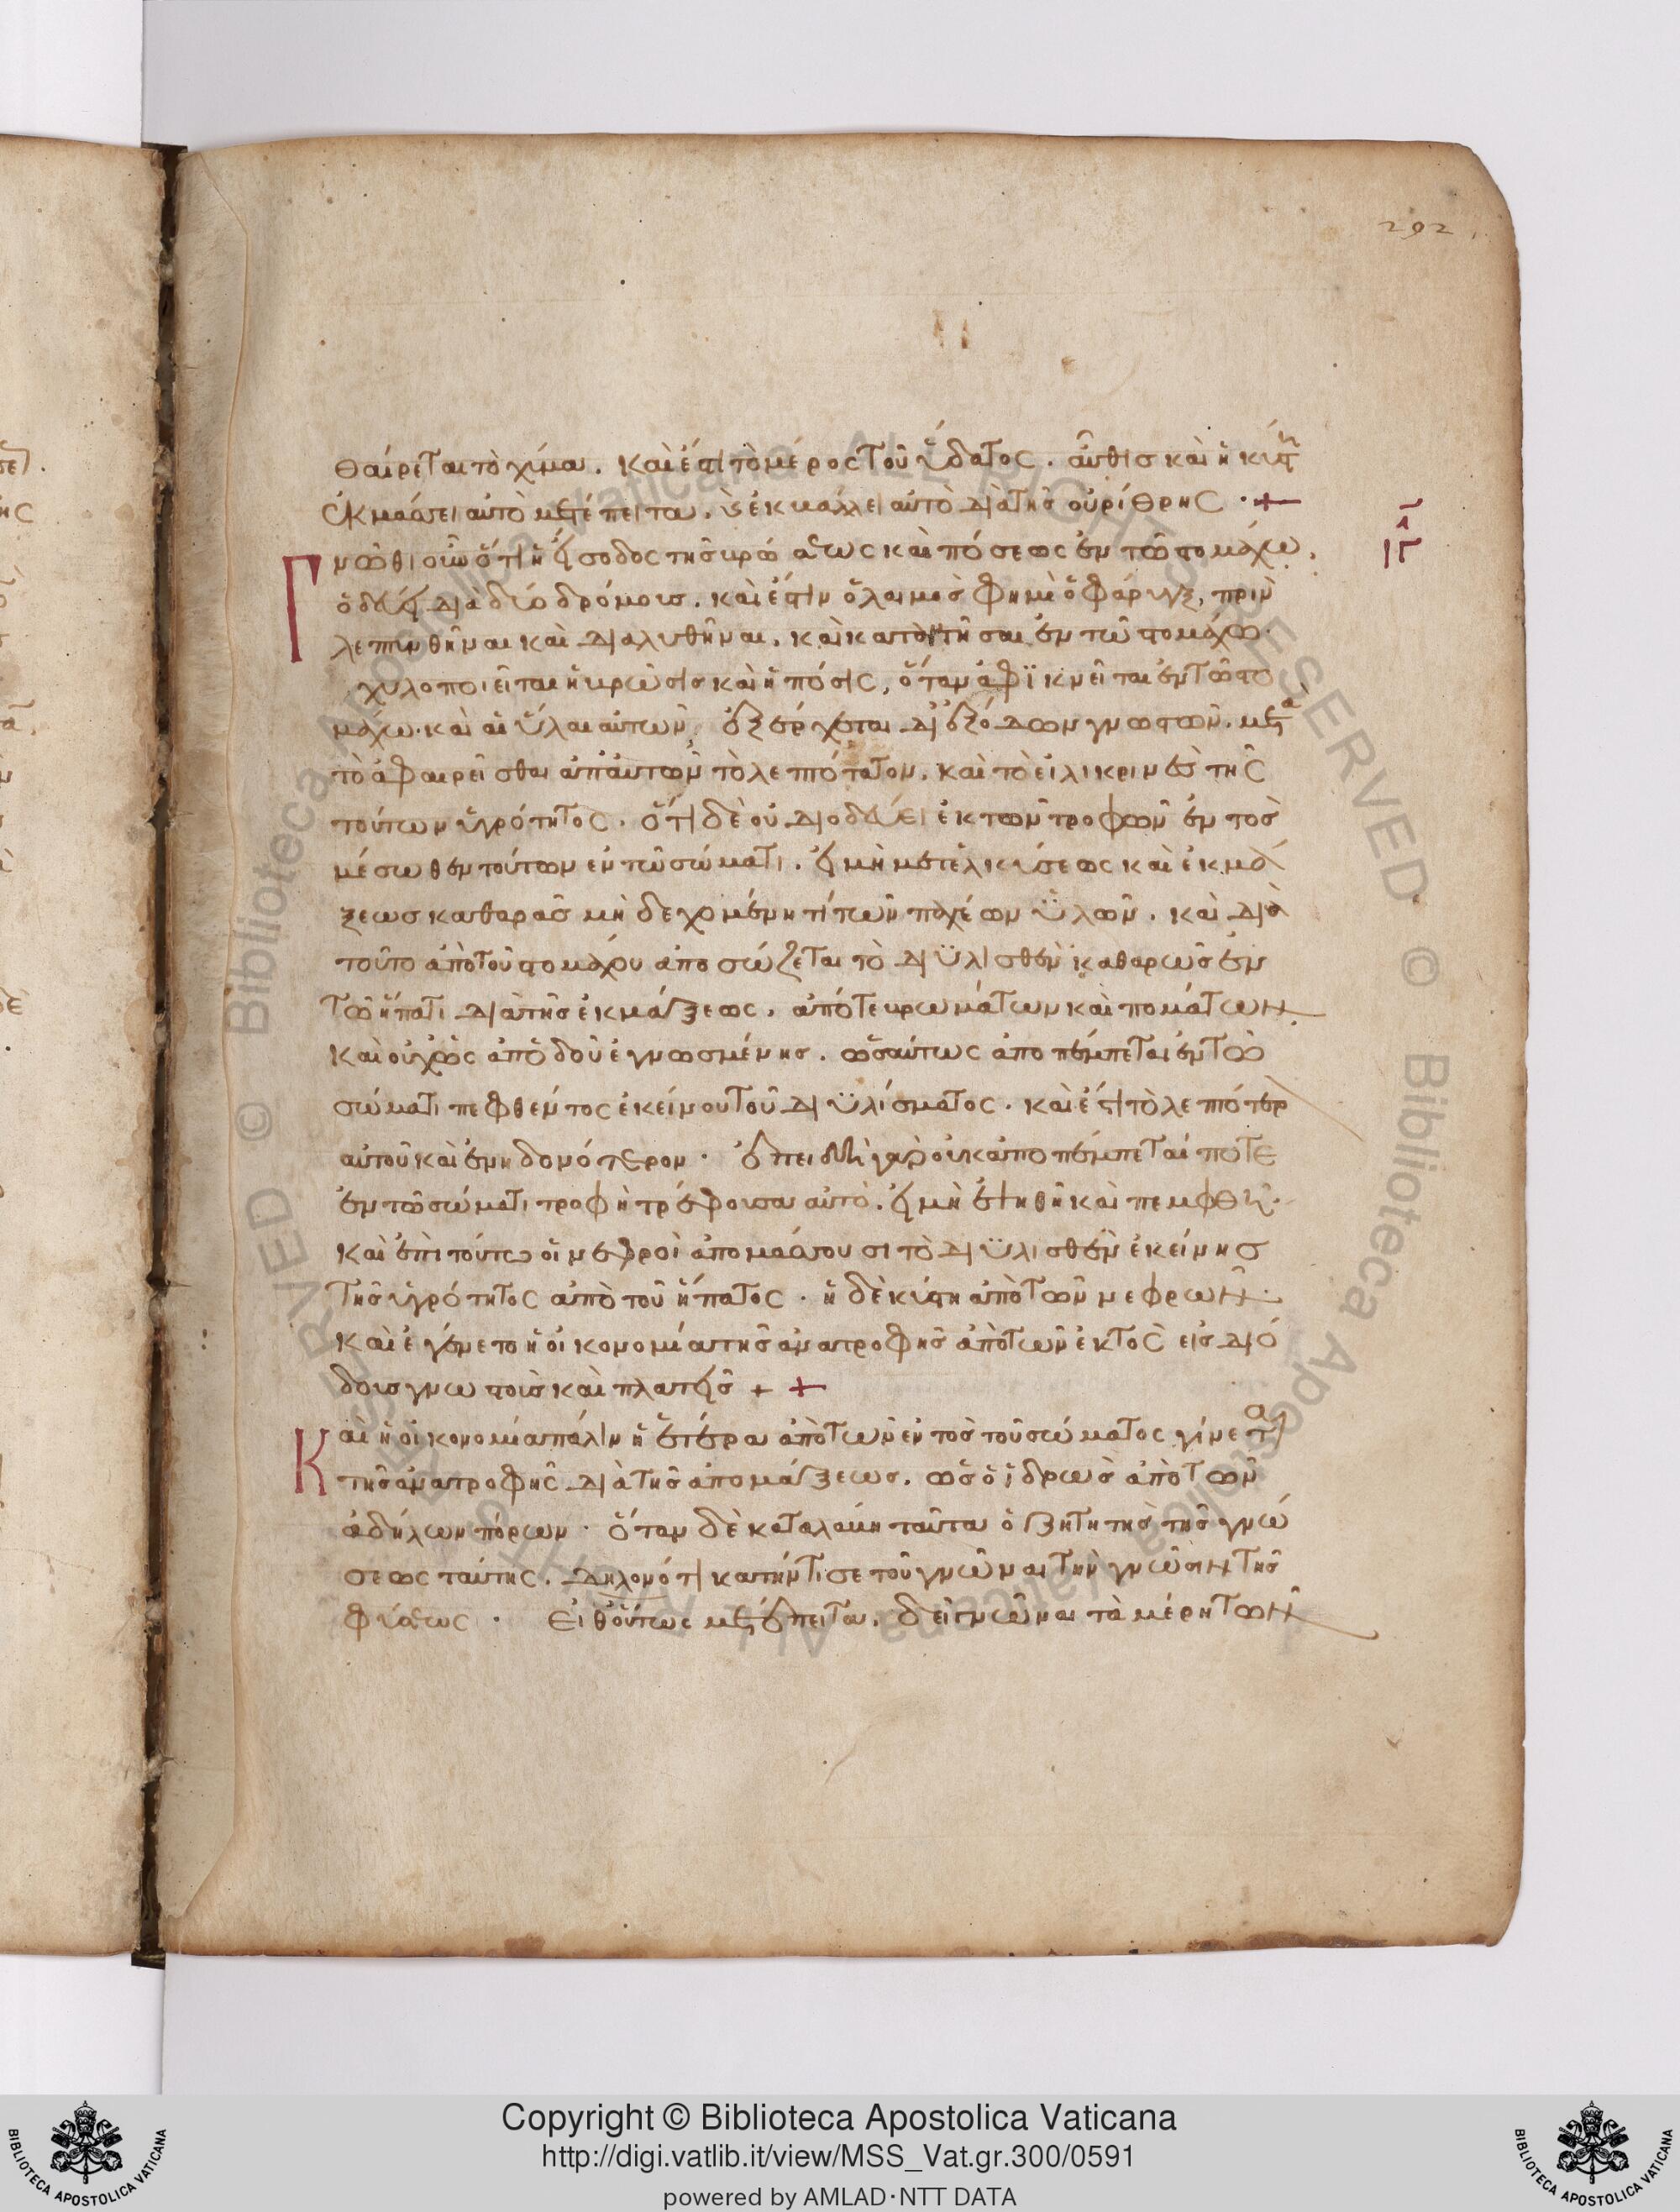 292
θαίρεται τὸ χίμα. καὶ ἔστι τὸ μέρος τοῦ ὕδατος. αὖθις καὶ ἡ κύστη
ἐκμάσσει αὐτὸ μετέπειτα. καὶ ἐκβάλλει αὐτὸ διὰ τῆς οὐρίθρης · +
Γνῶθι οὖν ὅτι ἡ εἴσοδος τῆς βρώσεως καὶ πόσεως ἐν τῶ στομάχω.
λεπτυνθῆναι καὶ διαλυθῆναι. καὶ καταντῆσαι ἐν τῶ στομάχω.
χυλοποιεῖται ἡ βρῶσις καὶ ἡ πόσις, ὅταν ἀφϊκνεῖται ἐν τῶ στο
μάχω. καὶ αἱ ὕλαι αὐτῶν, ἐξέρχεται δι' ἐξόδων γνωστῶν. μετὰ
τὸ ἀφαιρεῖσθαι ἀπ' αὐτῶν τὸ λεπτότατον. καὶ τὸ εἰλικρινὲς τῆς
τούτων ὑγρότητος. ὅτι δὲ οὐ διοδεύει ἐκ τῶν τροφῶν ἐντὸς
μέσωθεν τούτων ἐν τῶ σώματι. εἰ μὴ μεθ' ἑλκύσεως καὶ ἐκμά
ξεως καθαρᾶς μὴ δεχομένη τί τῶν παχέων ὑλῶν. καὶ διὰ
τοῦτο ἀπὸ τοῦ στομάχου ἀποσώζεται τὸ διϋλισθὲν καθαρῶς ἐν
τῶ ἥπατι διὰ τῆς ἐκμάξεως. ἀπό τε βρωμάτων καὶ πομάτων
καὶ οὐχ ὡς ἀπὸ ὁδοῦ ἐγνωσμένης. ὡσαύτως ἀποπέμπεται ἐν τῶ
σώματι πεφθέντος ἐκείνου τοῦ διϋλίσματος. καὶ ἔστι τὸ λεπτότερ
αὐτοῦ καὶ ἐνηδονότερον · ἐπειδὴ γὰρ οὐκ ἀποπέμπεταί ποτε
ἐν τῶ σώματι τροφὴ τρέφουσα αὐτὸ. εἰ μὴ ἑψηθῆ καὶ πεμφθῆ.
καὶ ἐπὶ τούτω οἱ νεφροὶ ἀπομάσσουσι τὸ διϋλισθὲν ἐκείνης
τῆς ὑγρότητος ἀπὸ τοῦ ἥπατος · ἡ δὲ κύστη ἀπὸ τῶν νεφρῶν.
καὶ ἐγένετο ἡ οἰκονομία τῆς ἀνατροφῆς ἀπὸ τῶν ἐκτὸς εἰσόδι
δοις γνωστοῖς καὶ πλατείς + +
Καὶ ἡ οἰκονομία πάλιν ἡ ἑτέρα ἀπὸ τῶν ἐντὸς τοῦ σώματος γίνεται
τῆς ἀνατροφῆς διὰ τῆς ἀπομάξεως. ὡς ὁ ἱδρὼς ἀπὸ τῶν
ἀδήλων πόρων · ὅταν δὲ καταλάβη ταῦτα ὁ ζητητὴς τῆς γνώ
σεως ταύτης. δηλονότι κατήντισε τοῦ γνῶναι τὴν γνῶσιν τῆς
φύσεως · Εἶθ' οὕτως μετέπειτα. δεῖ γνῶναι τὰ μέρη τῶν
Copyright © Biblioteca Apostolica Vaticana
http://digi.vatlib.it/view/MSS_Vat.gr.300/0591
powered by AMLAD·NTT DATA